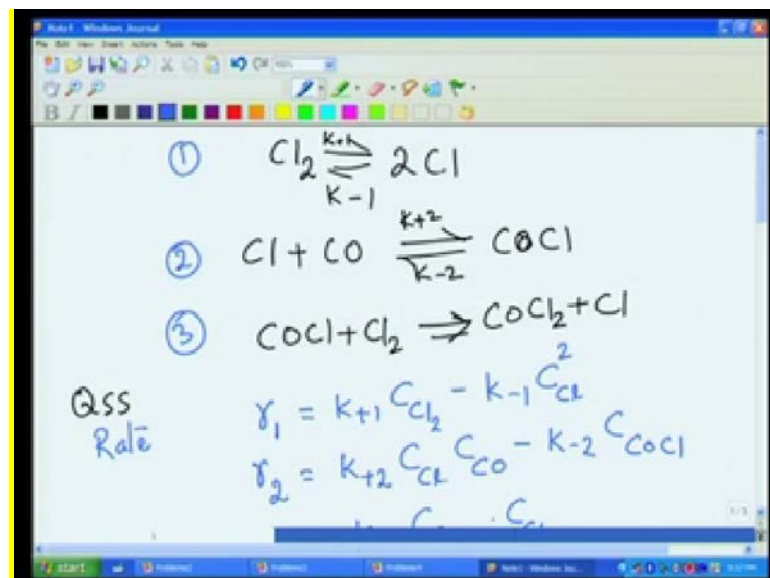 Note1 - Windows Journal
File Edit View Insert Actions Tools Help
B I
① Cl₂ ⇌ 2Cl
K+1
K-1
② Cl + CO ⇌ COCl
K+2
K-2
③ COCl + Cl₂ ⇌ COCl₂ + Cl
QSS
Rate
r₁ = K+1 C_Cl₂ - K-1 C_Cl²
r₂ = K+2 C_Cl C_CO - K-2 C_COCl
start
Note1 - Windows Jou...